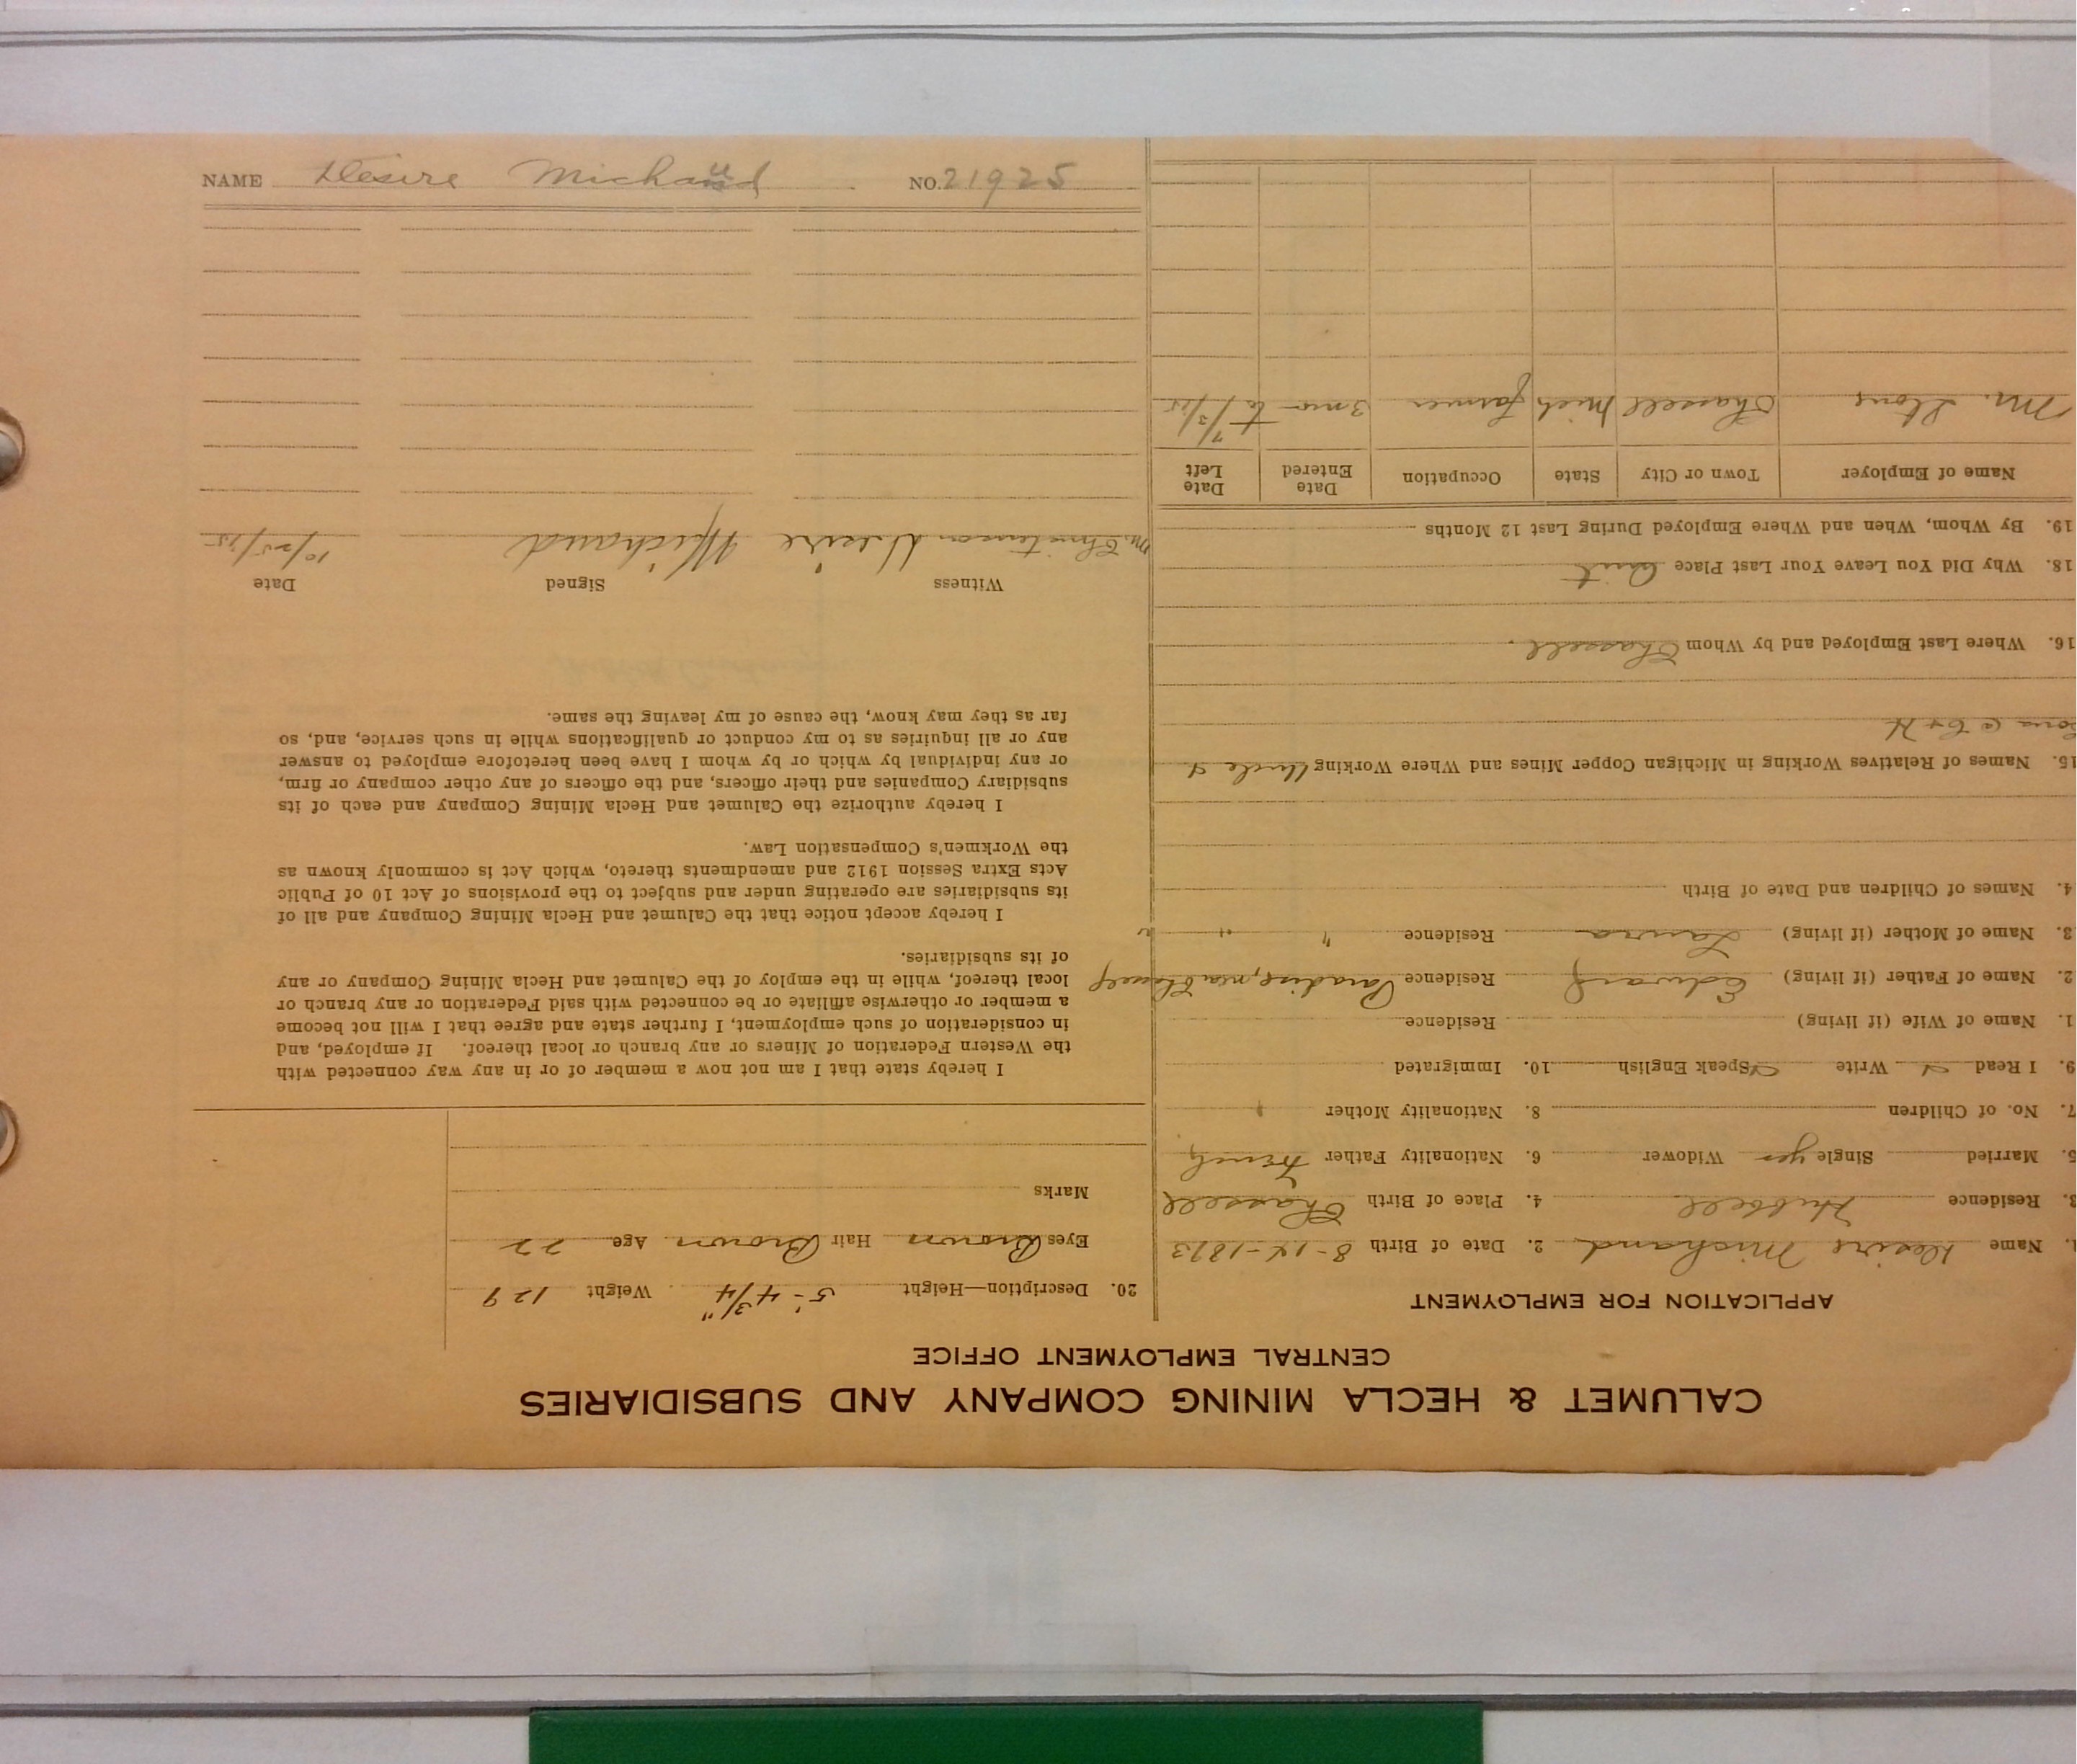 CALUMET & HECLA MINING COMPANY AND SUBSIDIARIES
CENTRAL EMPLOYMENT OFFICE
APPLICATION FOR EMPLOYMENT
1. Name Desire Michaud 2. Date of Birth 8-14-1893
3. Residence Hubbell 4. Place of Birth Chassell
5. Married Single yes Widower 6. Nationality Father French
7. No. of Children 8. Nationality Mother "
9. I Read Write Speak English 10. Immigrated
1. Name of Wife (if living) Residence
2. Name of Father (if living) Edward Residence Paradise, near Chassell
3. Name of Mother (if living) Laura Residence " " "
4. Names of Children and Date of Birth
15. Names of Relatives Working in Michigan Copper Mines and Where Working Uncle &
@ C & H
16. Where Last Employed and by Whom Chassell.
18. Why Did You Leave Your Last Place Quit
19. By Whom, When and Where Employed During Last 12 Months
Name of Employer Town or City State Occupation Date Entered Date Left
Mr. Stone Chassell Mich farmer 3 mo to 7/3/15
20. Description—Height 5'-4 3/4" Weight 129
Eyes Brown Hair Brown Age 22
Marks
I hereby state that I am not now a member of or in any way connected with
the Western Federation of Miners or any branch or local thereof. If employed, and
in consideration of such employment, I further state and agree that I will not become
a member or otherwise affiliate or be connected with said Federation or any branch or
local thereof, while in the employ of the Calumet and Hecla Mining Company or any
of its subsidiaries.
I hereby accept notice that the Calumet and Hecla Mining Company and all of
its subsidiaries are operating under and subject to the provisions of Act 10 of Public
Acts Extra Session 1912 and amendments thereto, which Act is commonly known as
the Workmen's Compensation Law.
I hereby authorize the Calumet and Hecla Mining Company and each of its
subsidiary Companies and their officers, and the officers of any other company or firm,
or any individual by which or by whom I have been heretofore employed to answer
any or all inquiries as to my conduct or qualifications while in such service, and, so
far as they may know, the cause of my leaving the same.
Witness Signed Date
M. Christenson Desire Michaud 10/25/15
NAME Desire Michaud NO. 21925